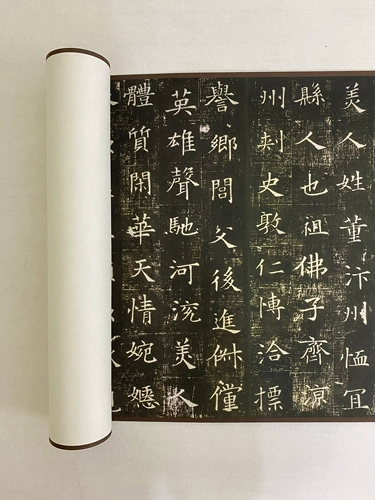 美人姓董汴州恤宜
縣人也祖佛子齊涼
州刾史敦仁博洽摽
譽鄉閭父後進俶儻
英雄聲馳河兗美人
體質閑華天情婉嫕